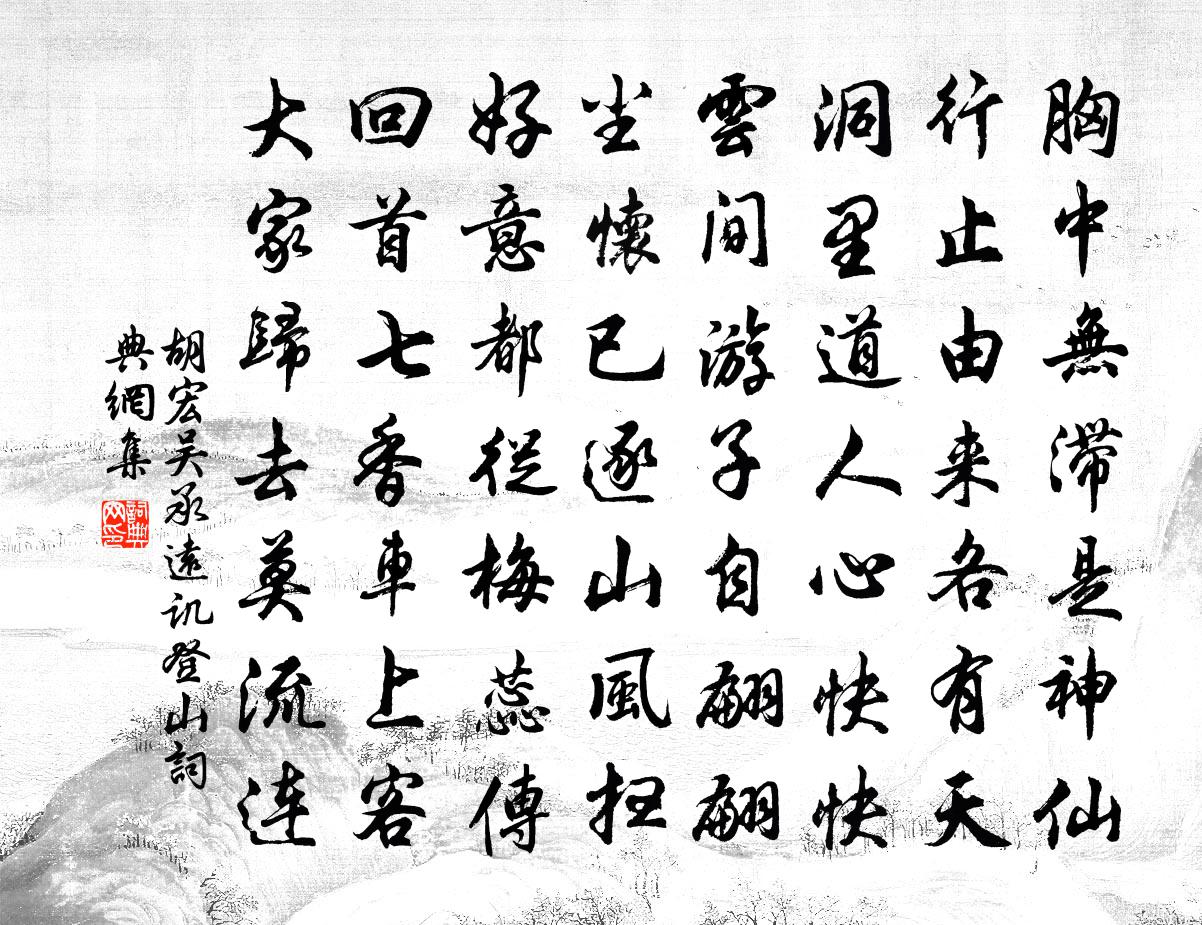 胸中無滯是神仙
行止由来各有天
洞里道人心快快
雲間游子自翩翩
尘懷已逐山風扫
好意都從梅蕊傳
回首七香車上客
大家歸去莫流連
胡宏吴承遠訊登山詞
典網集
詞典
网印